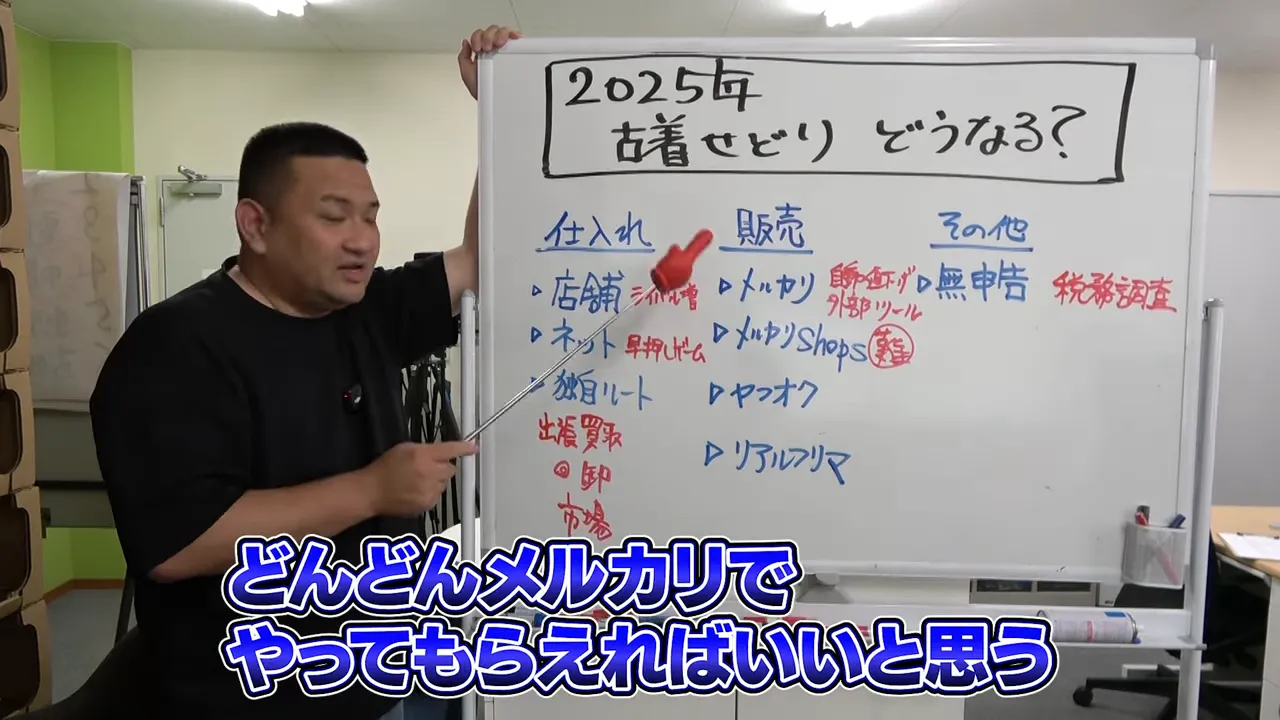 2025年
古着せどり どうなる?
仕入れ
▷店舗 ライバル増
▷ネット 早押しゲーム
▷独自ルート
出張買取
◎卸
市場
販売
▷メルカリ 自動値下げ
外部ツール
▷メルカリShops 業
▷ヤフオク
▷リアルフリマ
その他
▷無申告 税務調査
どんどんメルカリで
やってもらえればいいと思う